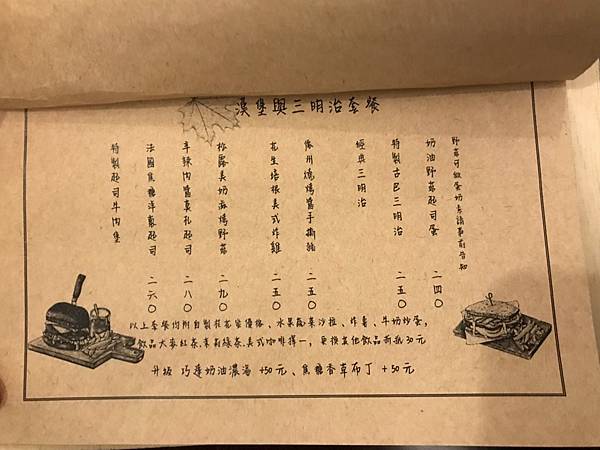 漢堡與三明治套餐
野菇可做蛋奶素請事前告知
奶油野菇起司蛋 二四〇
特製古巴三明治 二五〇
經典三明治
德州燒烤醬手撕豬 二五〇
花生培根美式炸雞 二五〇
松露美奶滋燉野菇 二九〇
辛辣肉醬莫札起司 二八〇
法國焦糖洋蔥起司 二六〇
特製起司牛肉堡
以上套餐均附自製優格、水果蔬菜沙拉、炸薯、牛奶炒蛋,
飲品大麥紅茶.茉莉綠茶.美式咖啡擇一,更換其他飲品折抵30元
升級 巧達奶油濃湯 +50元、焦糖香草布丁 +50元